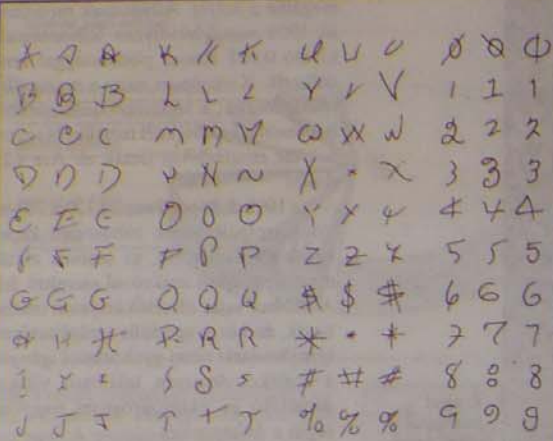 A A A K K K U U U 0 0 0
B B B L L L V V V 1 1 1
C C C M M M W W W 2 2 2
D D D N N N X X X 3 3 3
E E E O O O Y Y Y 4 4 4
F F F P P P Z Z Z 5 5 5
G G G Q Q Q $ $ $ 6 6 6
H H H R R R * * * 7 7 7
I I I S S S # # # 8 8 8
J J J T T T % % % 9 9 9